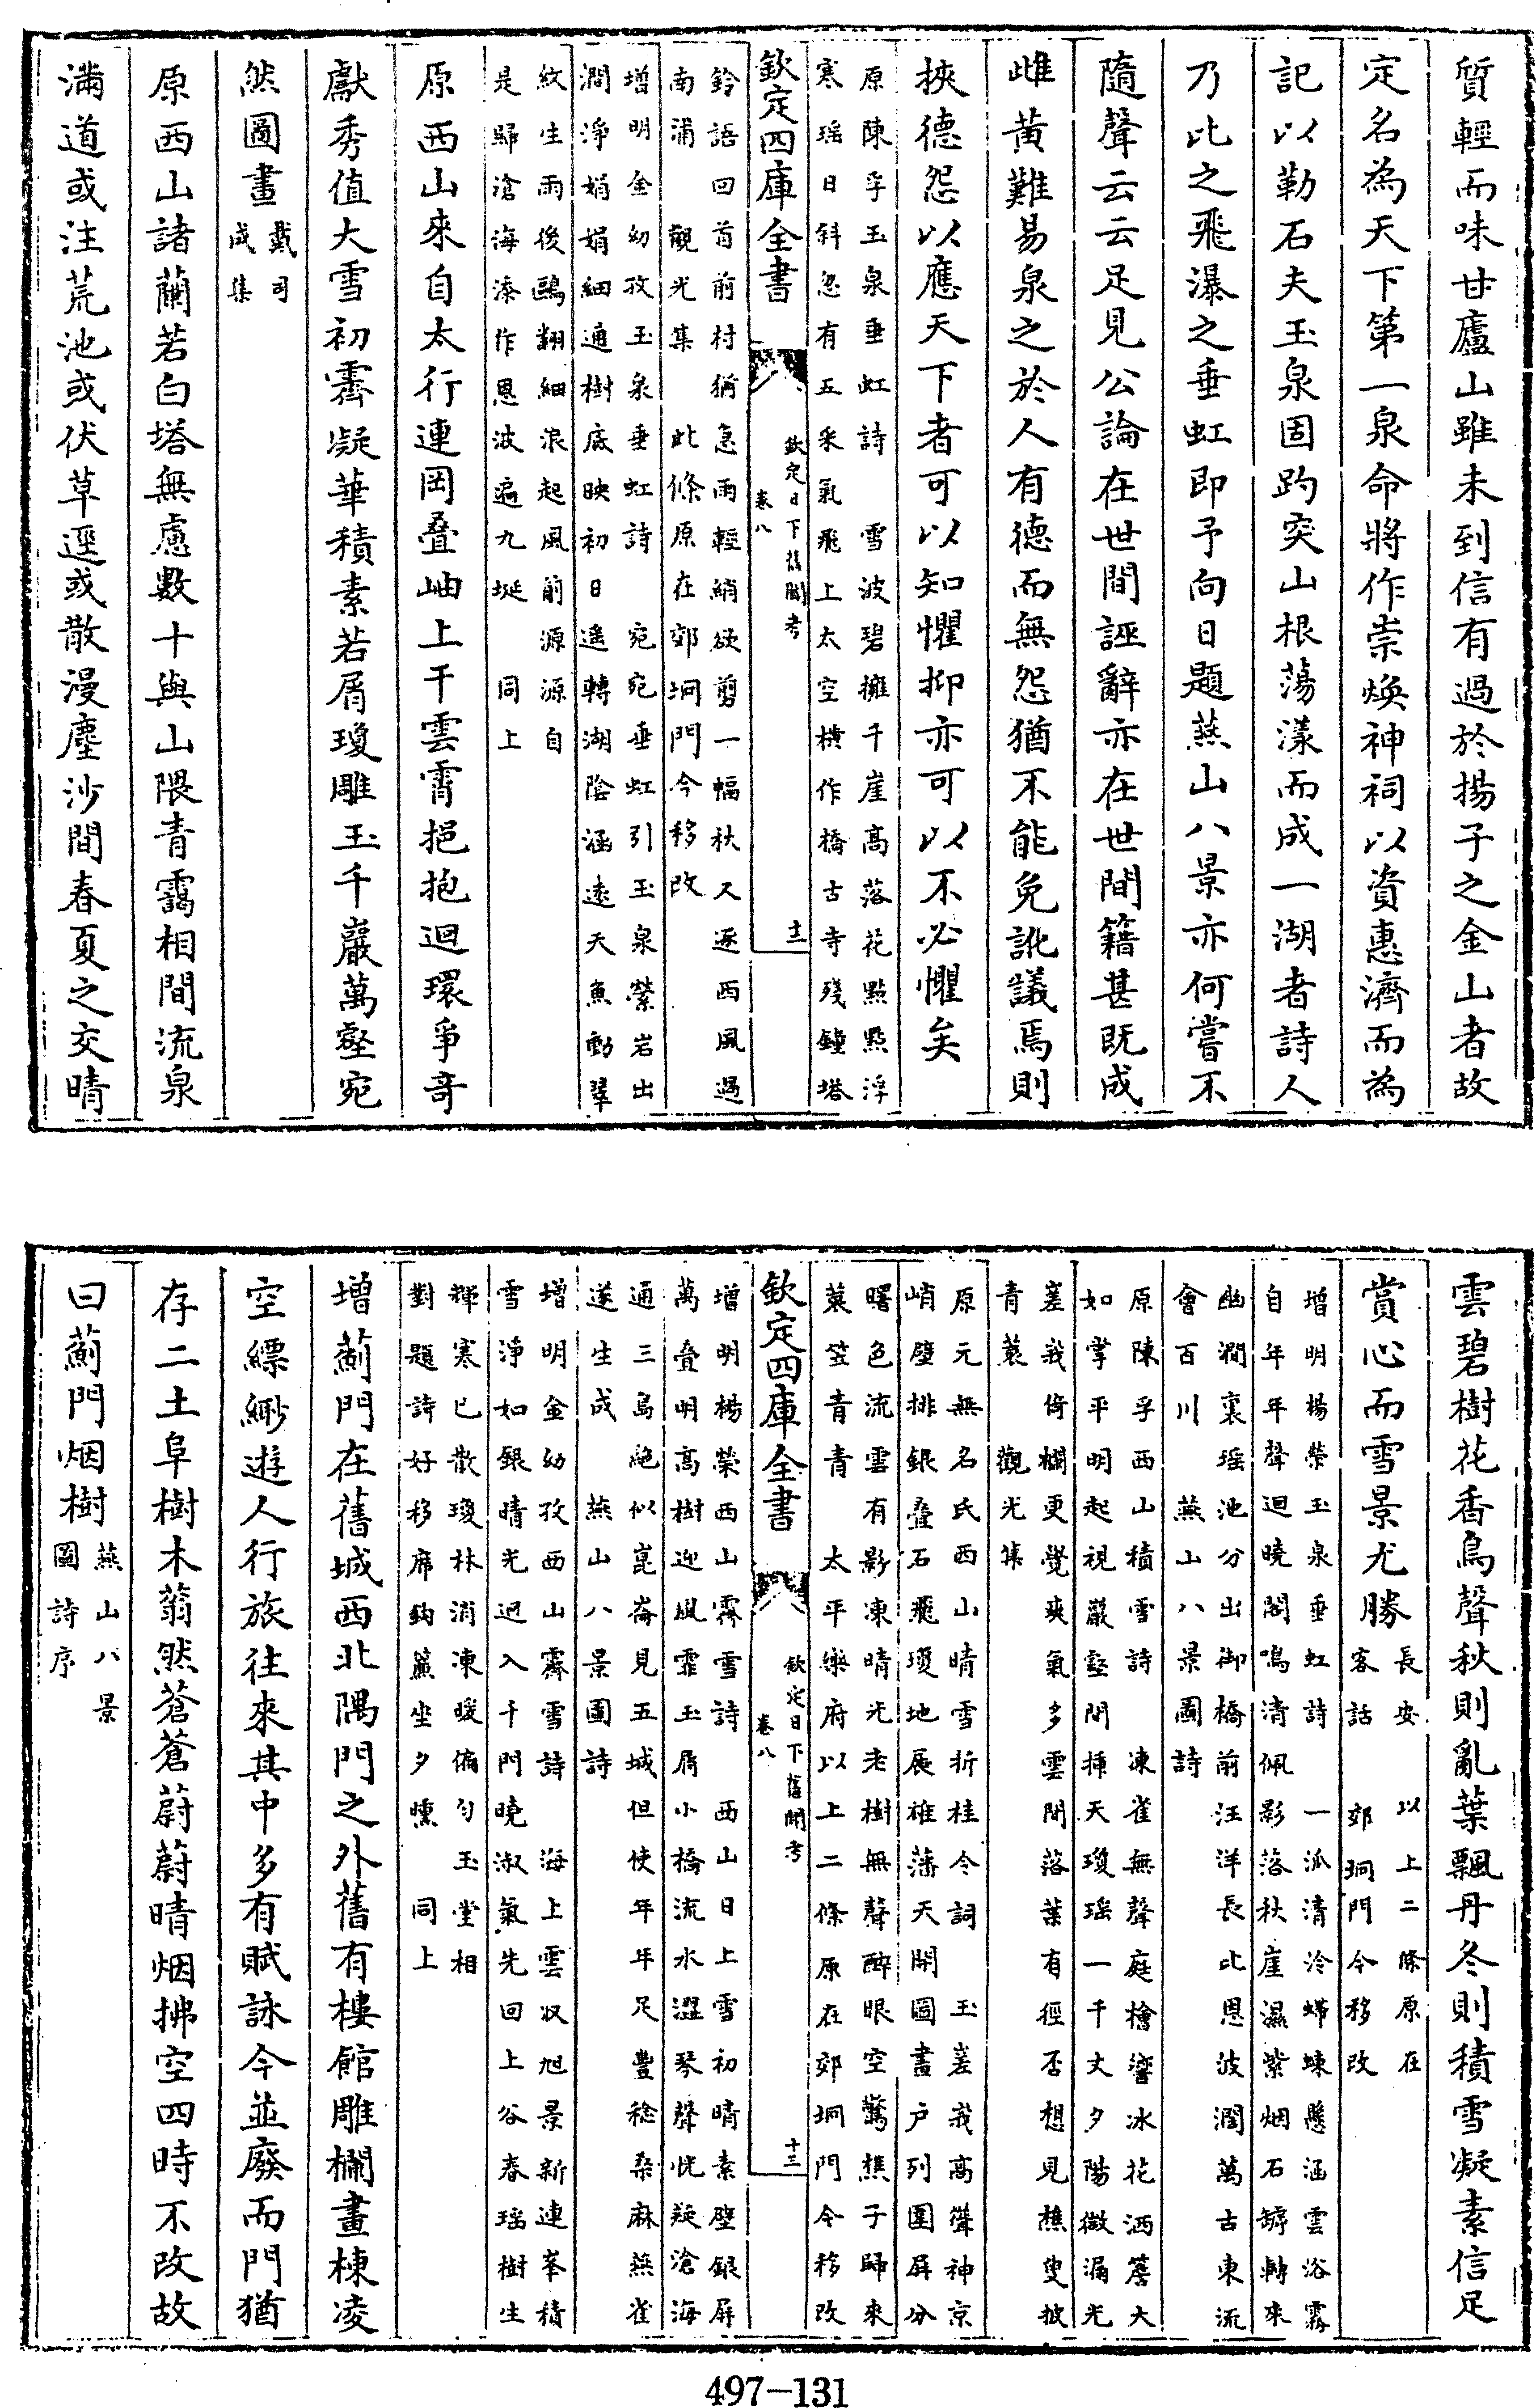 質輕而味甘廬山雖未到信有過於揚子之金山者故
定名為天下第一泉命將作崇煥神祠以資惠濟而為
記以勒石夫玉泉固趵突山根蕩漾而成一湖者詩人
乃比之飛瀑之垂虹即予向日題燕山八景亦何嘗不
隨聲云云足見公論在世間誣辭亦在世間籍甚既成
雌黃難易泉之於人有德而無怨猶不能免訛議焉則
挾德怨以應天下者可以知懼抑亦可以不必懼矣
原陳孚玉泉垂虹詩 雪波碧擁千崖高落花點點浮
寒瑶日斜忽有五采氣飛上太空横作橋古寺殘鐘塔
欽定四庫全書 欽定日下舊聞考 卷八 十二
鈴語回首前村猶急雨輕綃欲剪一幅秋又逐西風過
南浦 觀光集 此條原在郊坰門今移改
增明金幼孜玉泉垂虹詩 宛宛垂虹引玉泉縈岩出
澗淨娟娟細通樹底映初日遥轉湖陰涵遠天魚動翠
紋生雨後鷗翻細浪起風前源源自
是歸滄海漆作恩波遍九埏 同上
原西山來自太行連岡叠岫上干雲霄挹抱迴環爭奇
獻秀值大雪初霽凝華積素若屑瓊雕玉千巖萬壑宛
然圖畫 戴司成集
原西山諸蘭若白塔無慮數十與山隈青靄相間流泉
滿道或注荒池或伏草逕或散漫塵沙間春夏之交晴
雲碧樹花香鳥聲秋則亂葉飄丹冬則積雪凝素信足
賞心而雪景尤勝 長安客話 以上二條原在郊坰門今移改
增明楊榮玉泉垂虹詩 一派清泠螮蝀懸涵雲浴霧
自年年聲迴曉閣鳴清佩影落秋崖濕紫烟石罅轉來
幽澗裏瑶池分出御橋前汪洋長此恩波濶萬古東流
會百川 燕山八景圖詩
原陳孚西山積雪詩 凍雀無聲庭檜響冰花洒簷大
如掌平明起視巖壑間插天瓊瑶一千丈夕陽微漏光
嵳峩倚欄更覺爽氣多雲間落葉有徑否想見樵叟披
青蓑 觀光集
原元無名氏西山晴雪折桂令詞 玉嵳峩高聳神京
峭壁排銀叠石飛瓊地展雄藩天開圖畫户列圍屏分
曙色流雲有影凍晴光老樹無聲醉眼空驚樵子歸來
蓑笠青青 太平樂府 以上二條原在郊坰門今移改
欽定四庫全書 欽定日下舊聞考 卷八 十三
增明楊榮西山霽雪詩 西山日上雪初晴素壁銀屏
萬叠明高樹迎風霏玉屑小橋流水澀琴聲恍疑滄海
通三島絶似崑崙見五城但使年年足豐稔桑麻燕雀
遂生成 燕山八景圖詩
增明金幼孜西山霽雪詩 海上雲收旭景新連峯積
雪淨如銀晴光迥入千門曉淑氣先回上谷春瑶樹生
輝寒已散瓊林消凍暖偏勻玉堂相
對題詩好移席鈎簾坐夕曛 同上
增薊門在舊城西北隅門之外舊有樓館雕欄畫棟凌
空縹緲遊人行旅往來其中多有賦詠今並廢而門猶
存二土阜樹木蓊然蒼蒼蔚蔚晴烟拂空四時不改故
曰薊門烟樹 燕山八景圖詩序
497-131